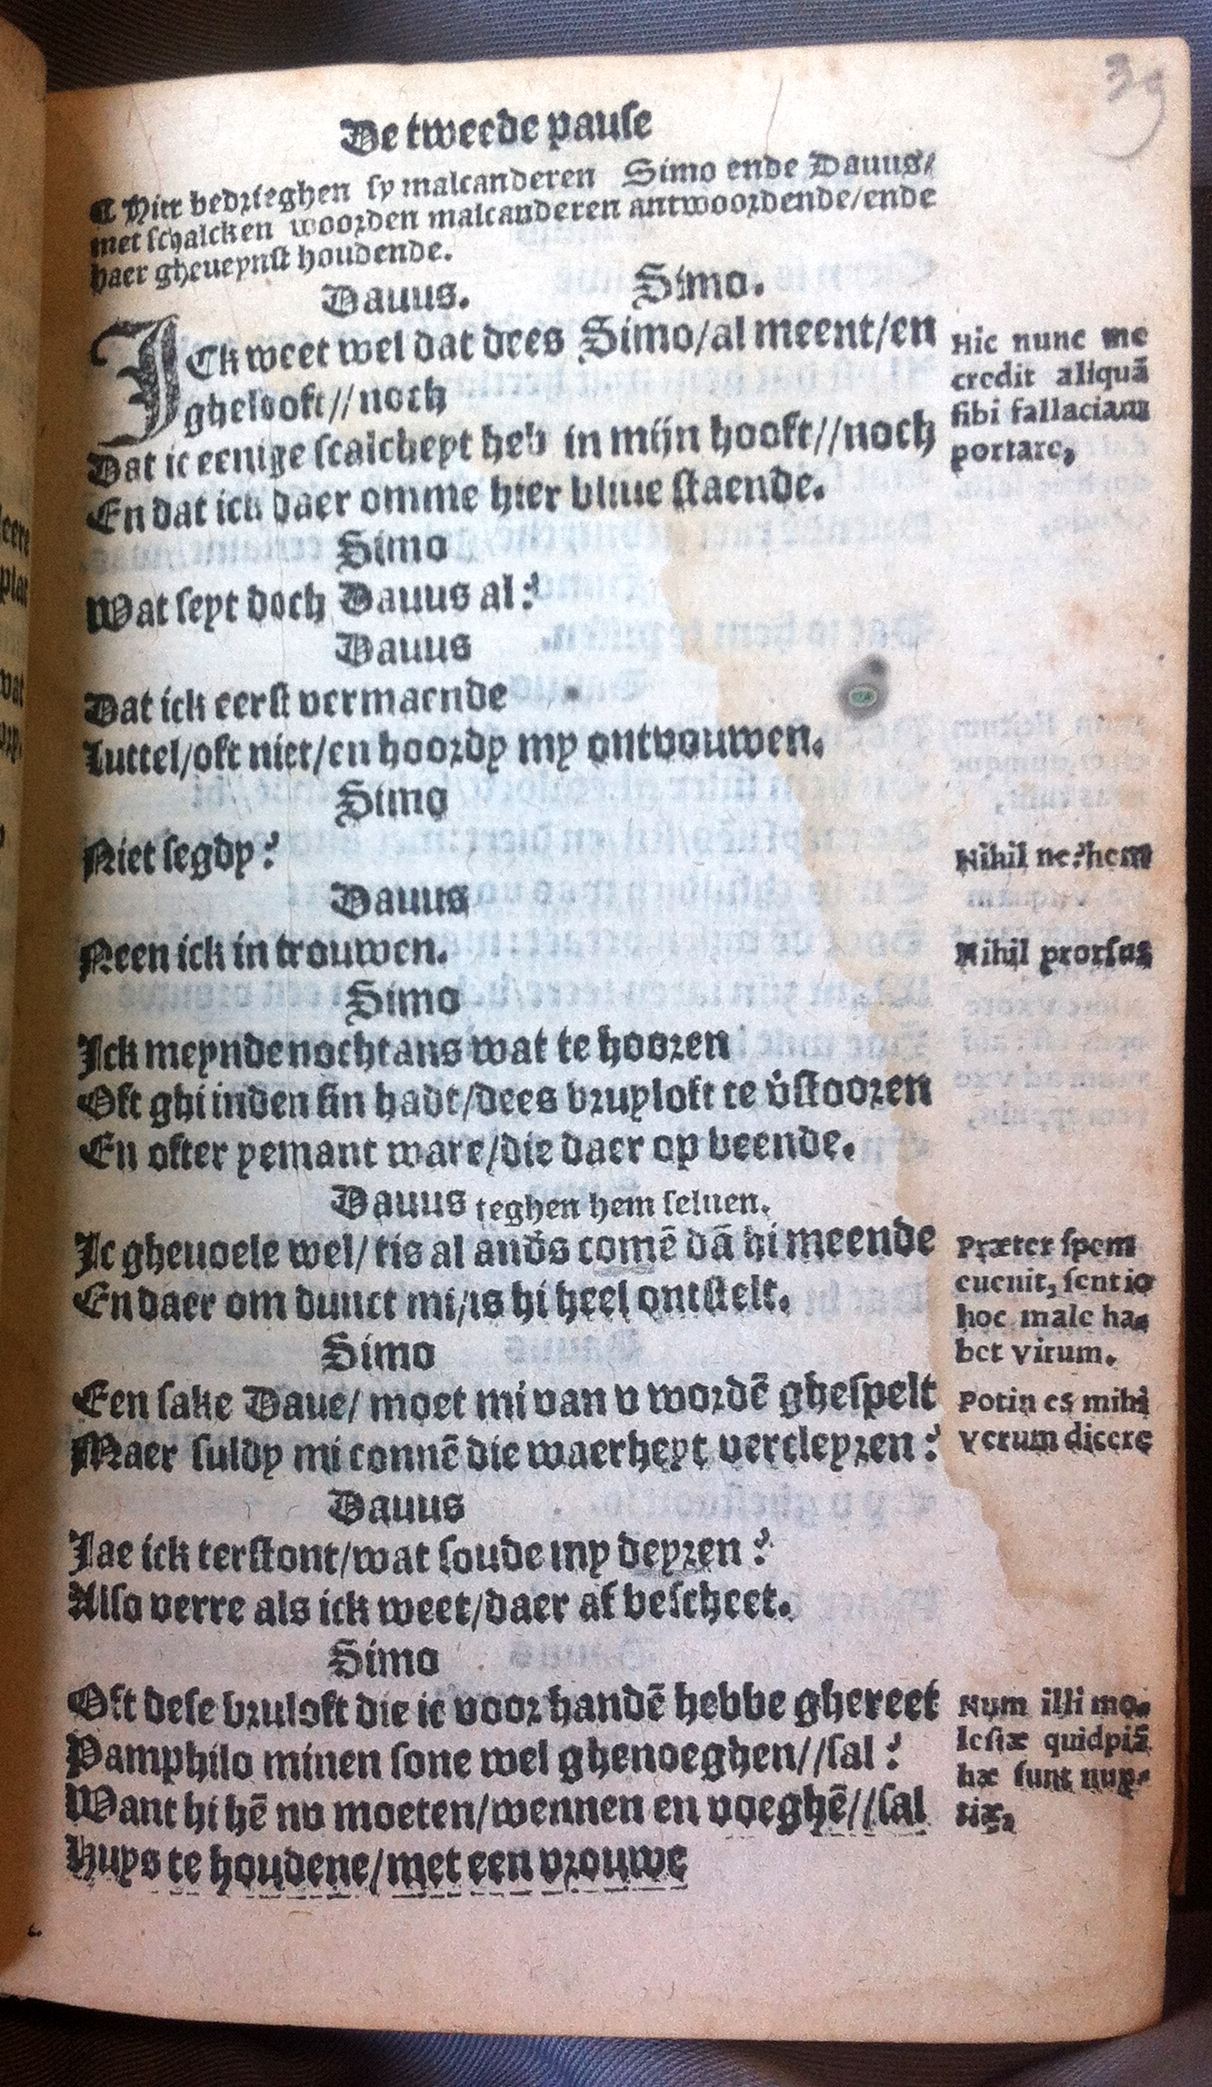 39
De tweede pause
¶ Hier bedrieghen sy malcanderen Simo ende Dauus/
met schalcken woorden malcanderen antwoordende/ende
haer gheueynst houdende.
Dauus. Simo.
ICk weet wel dat dees Simo/al meent/en
ghelooft//noch
Dat ic eenige scalcheyt heb in mijn hooft//noch
En dat ick daer omme hier bliue staende.
Hic nunc me
credit aliquã
sibi fallaciam
portare,
Simo
Wat seyt doch Dauus al?
Dauus
Dat ick eerst vermaende
Luttel/oft niet/en hoordy my ontvouwen.
Simo
Niet segdy?
Nihil ne?hem
Dauus
Neen ick in trouwen.
Nihil prorsus
Simo
Ick meynde nochtans wat te hooren
Oft ghi inden sin hadt/dees bruyloft te v̊stooren
En ofter yemant ware/die daer op beende.
Dauus teghen hem seluen.
Ic gheuoele wel/tis al and̊s comē dā hi meende
En daer om dunct mi/is hi heel ontstelt.
Præter spem
euenit, sentio
hoc male ha-
bet virum.
Simo
Een sake Daue/ moet mi van v wordē ghespelt
Maer suldy mi connē die waerheyt vercleyren?
Potin es mihi
verum dicere
Dauus
Jae ick terstont/wat soude my deyren?
Also verre als ick weet/daer af bescheet.
Simo
Oft dese bruloft die ic voor handē hebbe ghereet
Pamphilo minen sone wel ghenoeghen//sal?
Want hi hē nv moeten/wennen en voeghē//sal
Huys te houdene/met een vrouwe
Num illi mo-
lestæ quidpiã
hæ sunt nup-
tiæ,